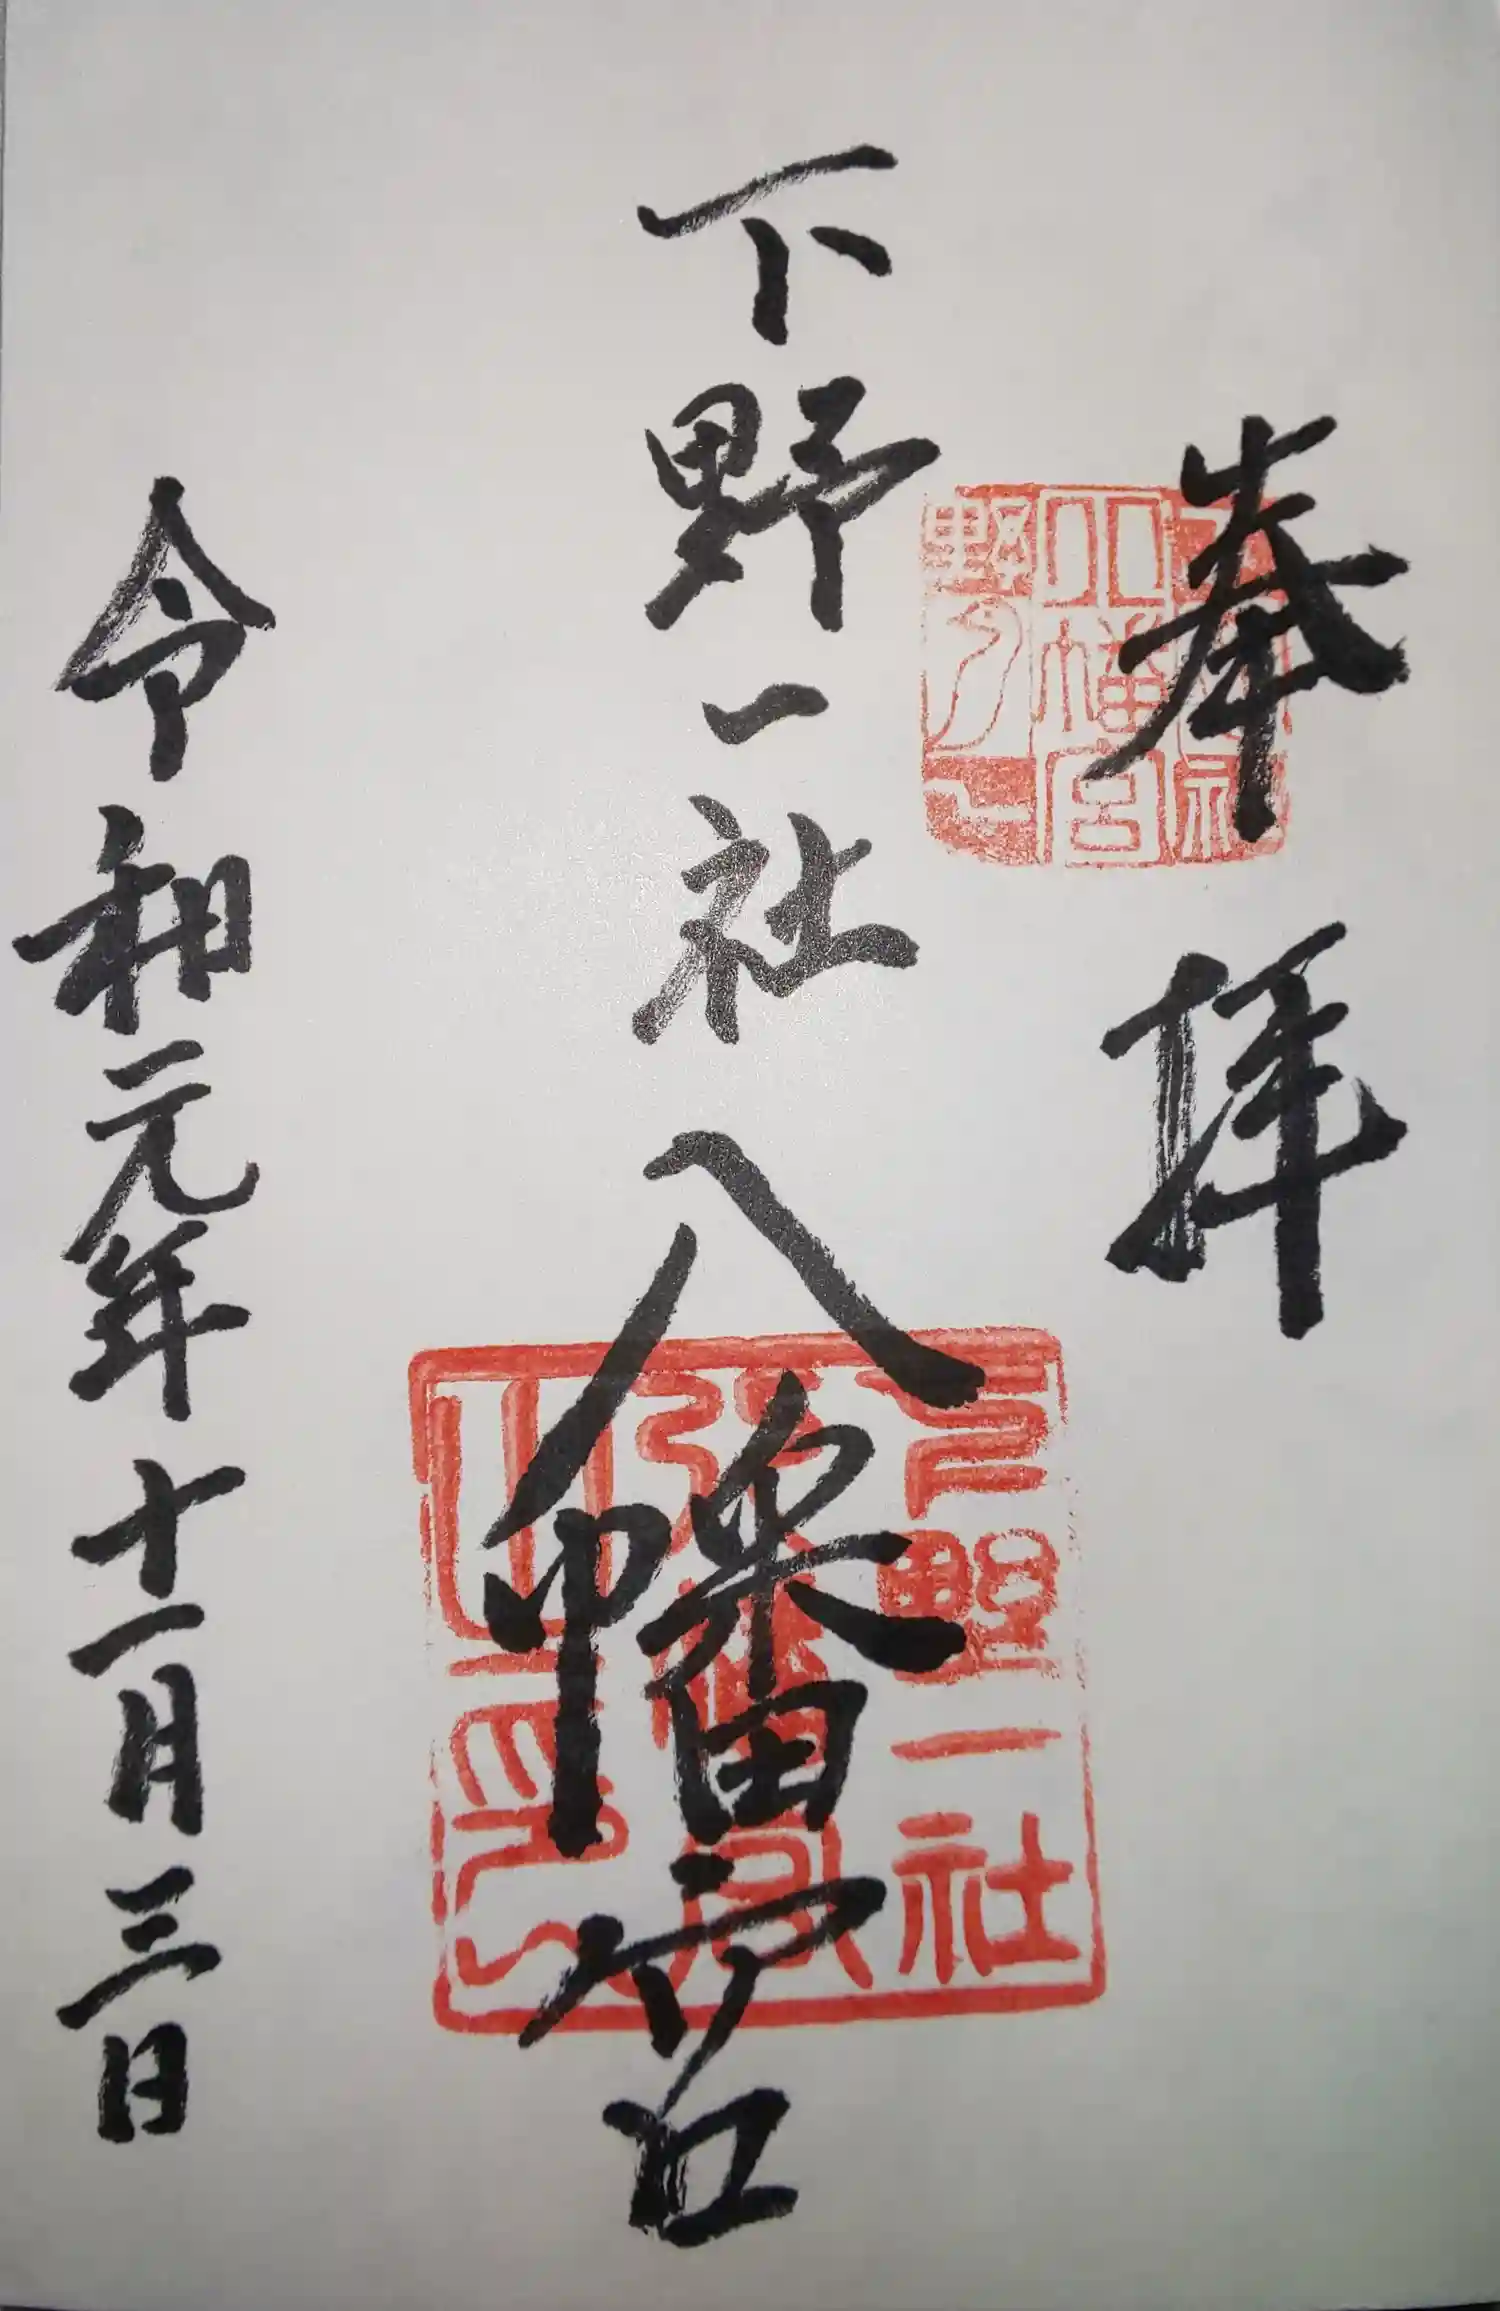 奉拝
下野一社八幡宮
令和元年十一月三日
下野一社